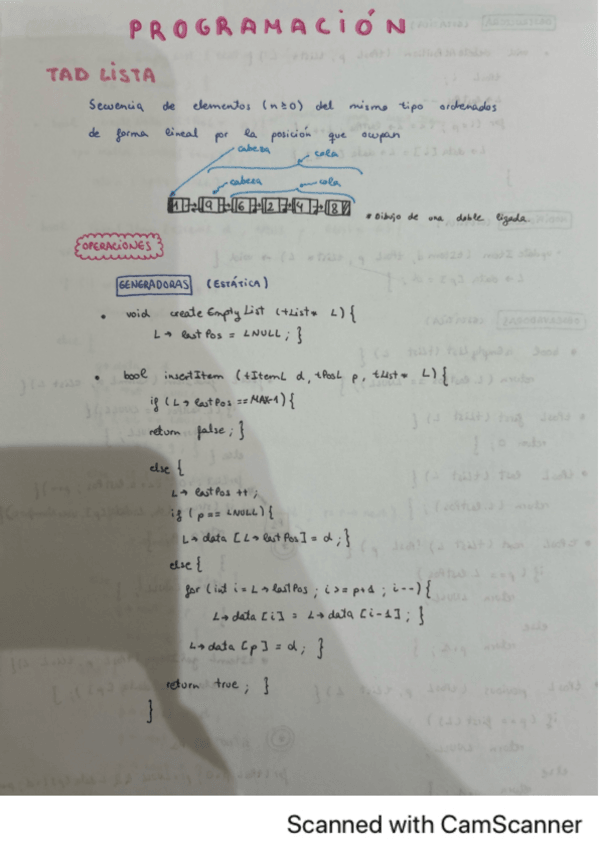 PROGRAMACIÓN
TAD LISTA
Secuencia de elementos (n≥0) del mismo tipo ordenados
de forma lineal por la posición que ocupan
cabeza
cola
cabeza
cola
1 9 6 2 4 8
* Dibujo de una doble ligada.
OPERACIONES
GENERADORAS (ESTÁTICA)
• void createEmptyList (tList* L) {
L→ lastPos = LNULL; }
• bool insertItem (tItemL d, tPosL p, tList* L) {
if (L→ lastPos == MAX-1) {
return false; }
else {
L→ lastPos ++;
if (p == LNULL) {
L→ data [L→ lastPos] = d; }
else {
for (int i = L→ lastPos; i >= p+1; i--) {
L→ data [i] = L→ data [i-1]; }
L→ data [p] = d; }
return true; }
}
Scanned with CamScanner